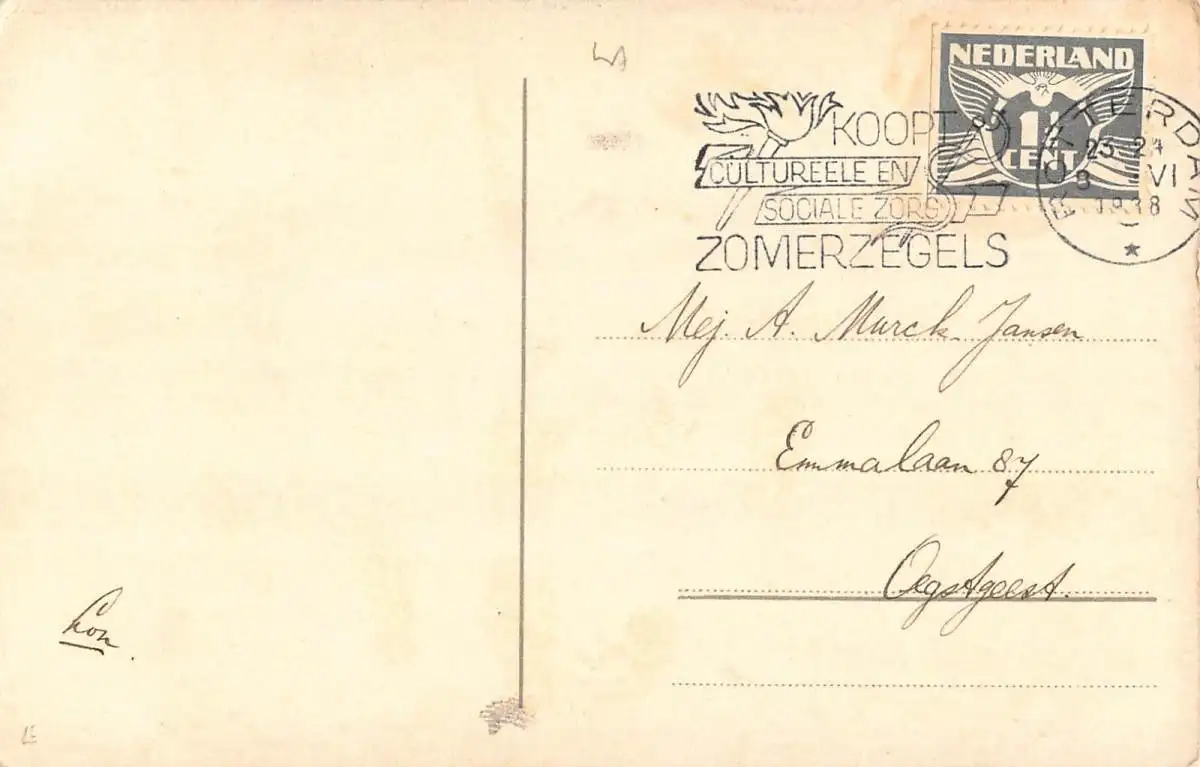 NEDERLAND
1½
CENT
KOOPT
CULTUREELE EN
SOCIALE ZORG
ZOMERZEGELS
ROTTERDAM
23-24
8 VI
1938
Mej. A. Murck Jansen
Emmalaan 87
Oegstgeest.
Lon.